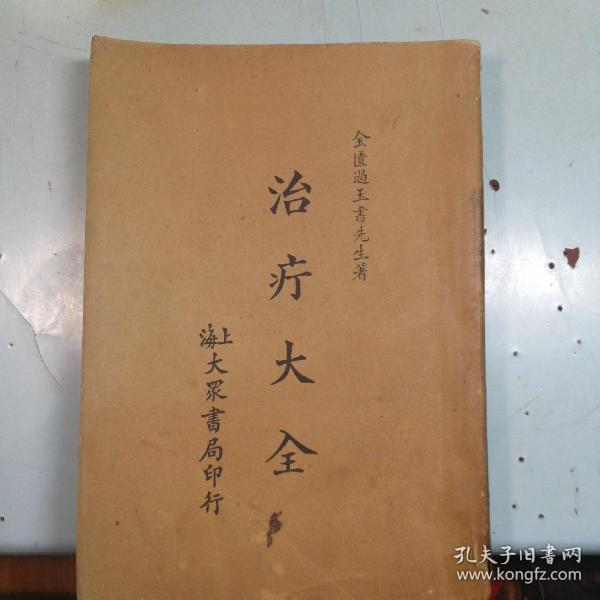 金匱過玉書先生著
治疔大全
上海大眾書局印行
孔夫子旧书网
www.kongfz.com